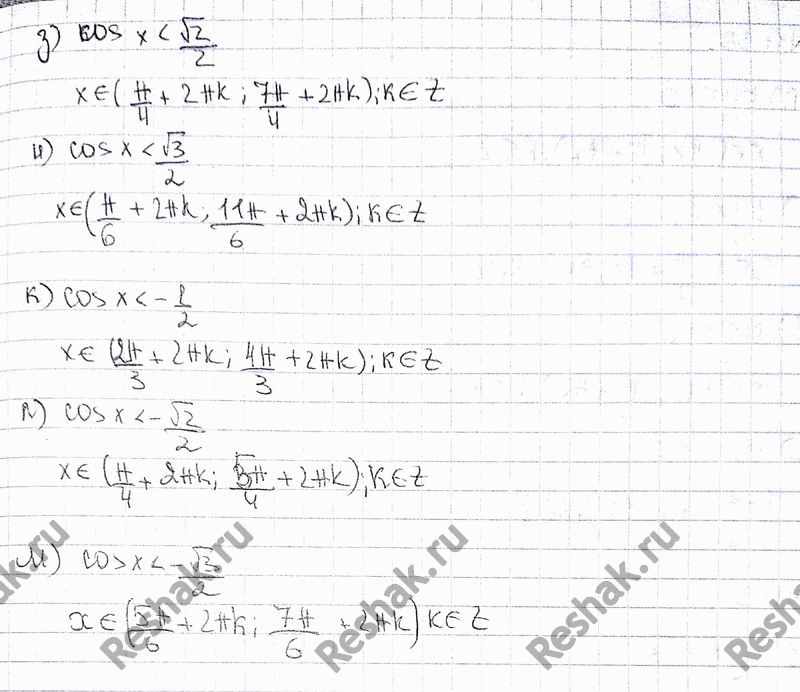 з) cos x < √2/2
x∈(π/4 + 2πk ; 7π/4 + 2πk); k∈Z
и) cos x < √3/2
x∈(π/6 + 2πk ; 11π/6 + 2πk); k∈Z
к) cos x < -1/2
x∈ (2π/3 + 2πk ; 4π/3 + 2πk); k∈Z
л) cos x < -√2/2
x∈ (π/4 + 2πk ; 5π/4 + 2πk); k∈Z
м) cos x < -√3/2
x∈(5π/6 + 2πk ; 7π/6 + 2πk) k∈Z
Reshak.ru
Reshak.ru
Reshak.ru
Reshak.ru
ak.ru